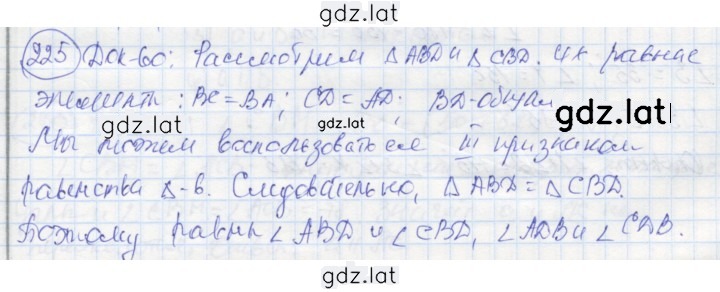 gdz.lat
225 Док-во: Рассмотрим △ ABD и △ CBD. Их равные
элементы: BC = BA; CD = AD; BD-общая
gdz.lat gdz.lat
Мы можем воспользоваться III признаком
gdz.lat
равенства △-в. Следовательно, △ ABD = △ CBD.
Поэтому равны ∠ ABD и ∠ CBD, ∠ ADB и ∠ CDB.
gdz.lat